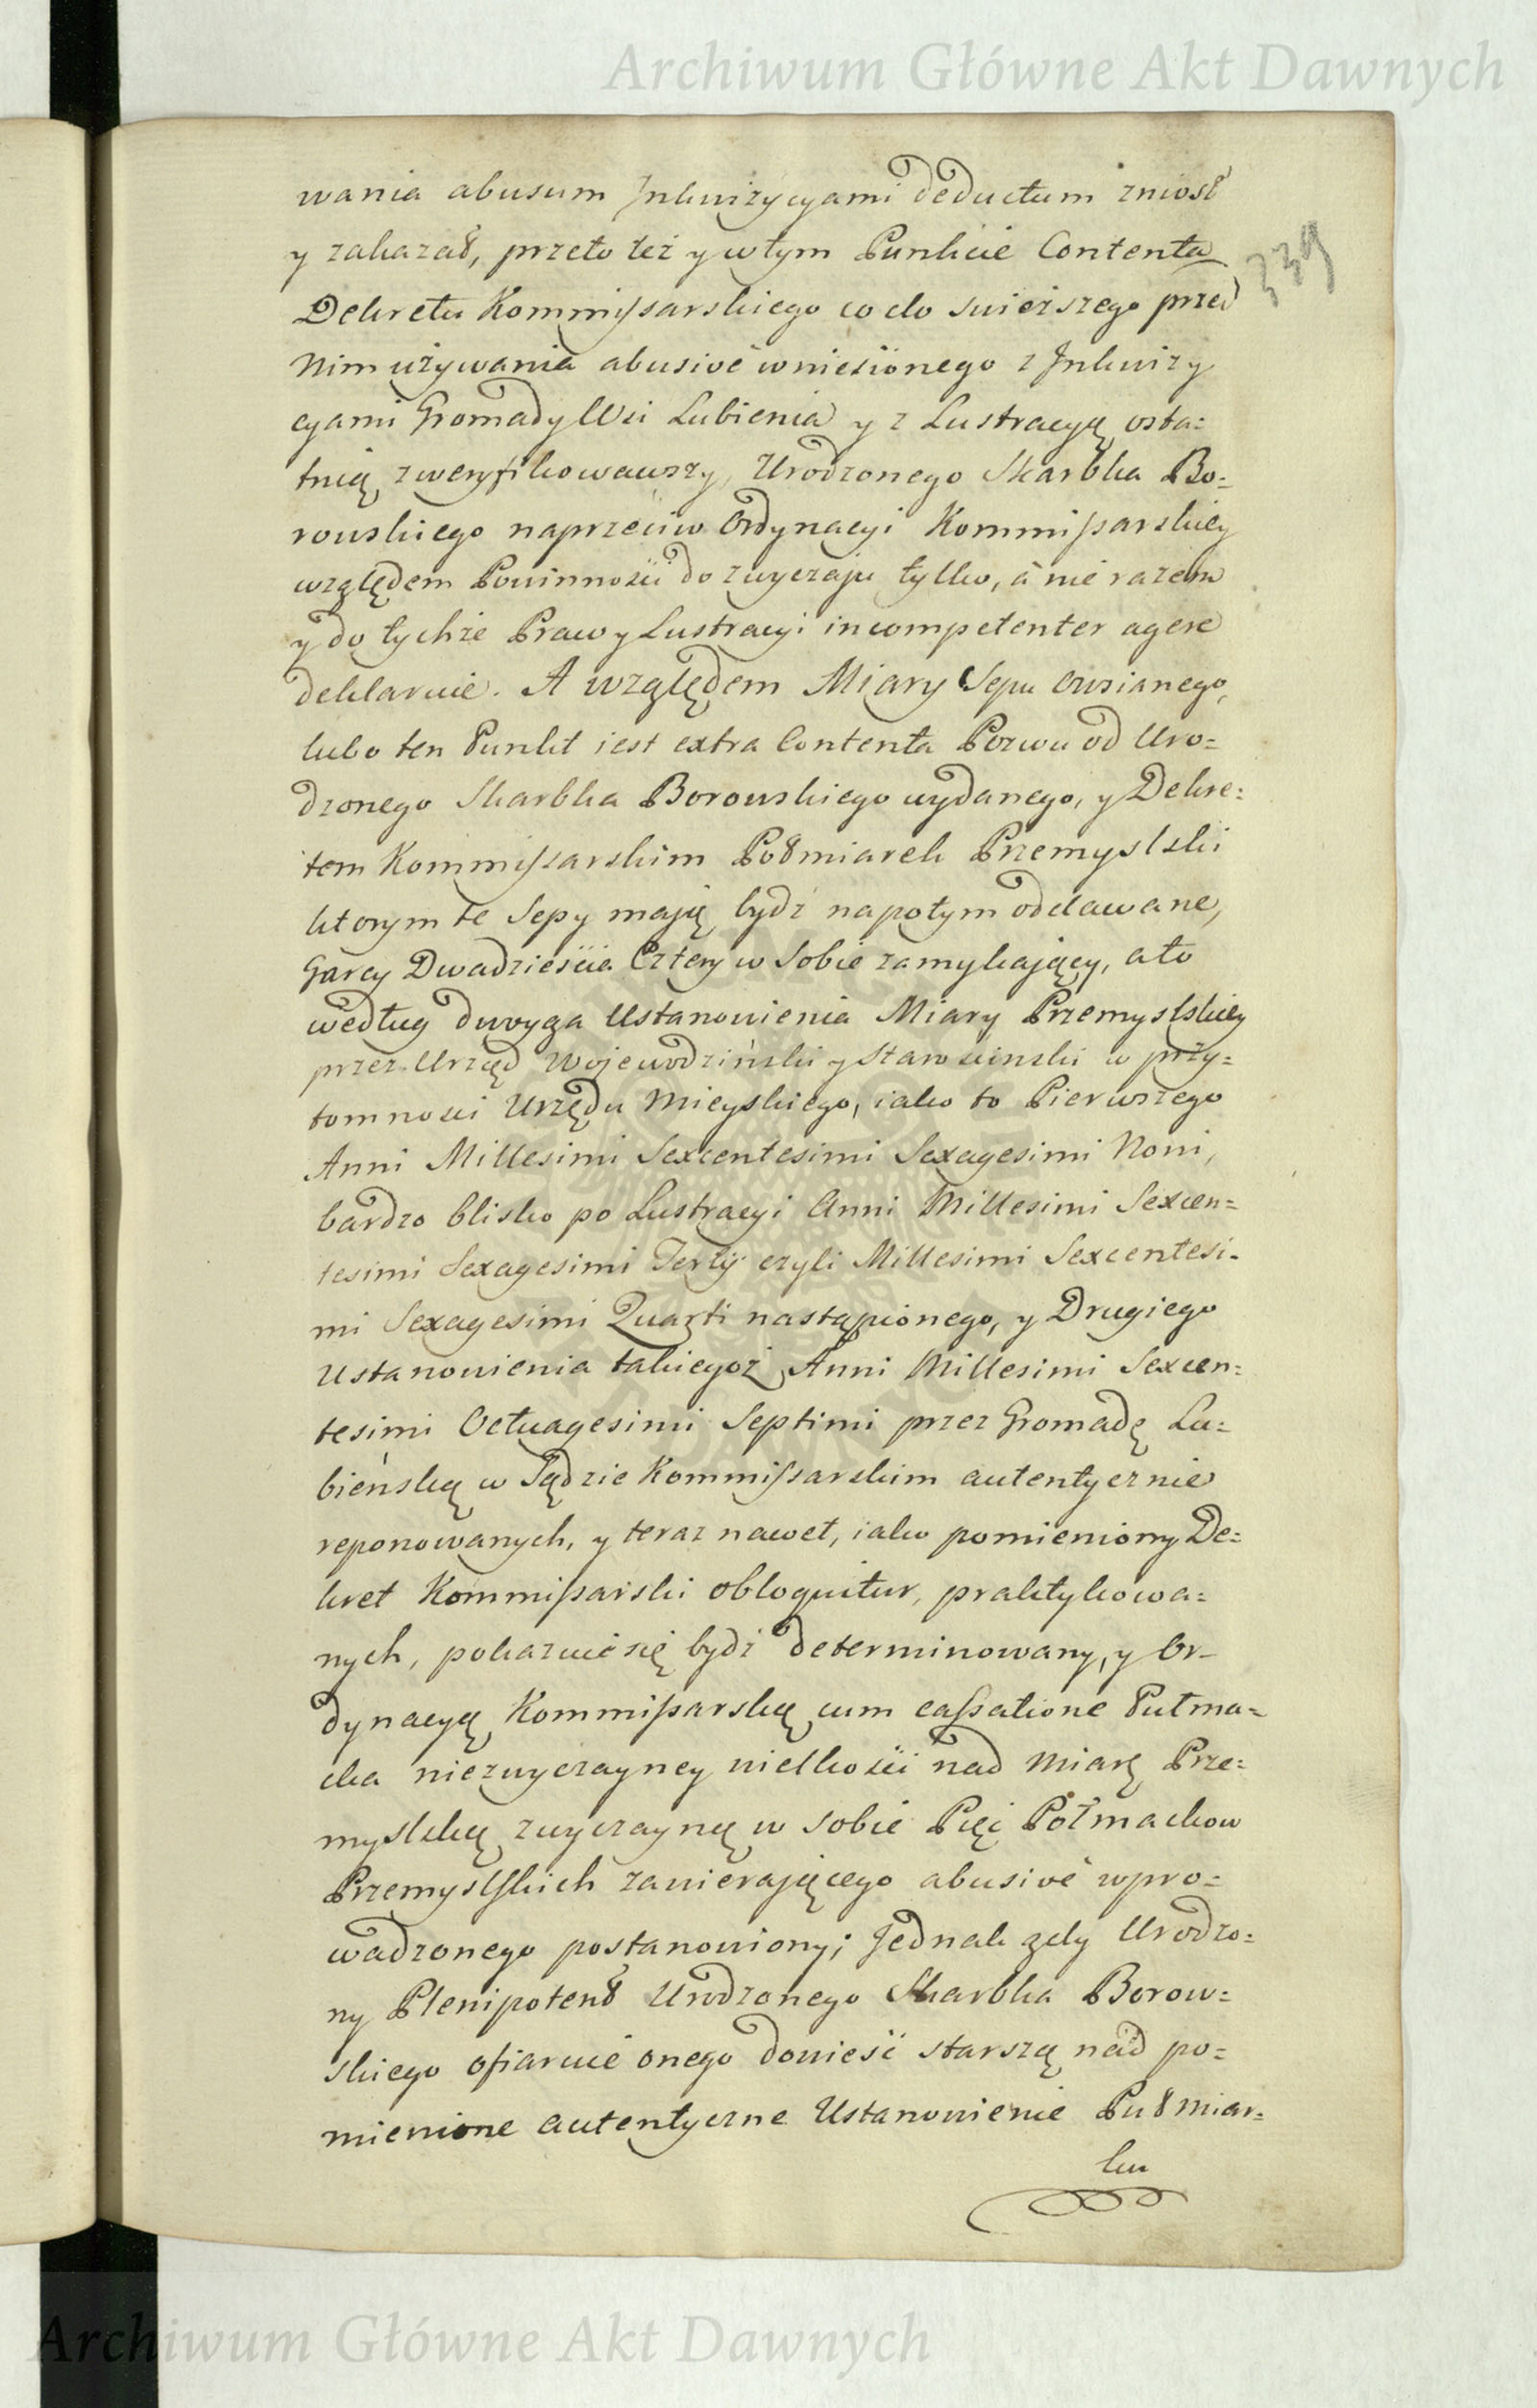 Archiwum Główne Akt Dawnych
wania abusum Inkwizycyami deductum zniosł
y zakazał, przeto też y w tym Punkcie Contenta
339
Dekretu Kommissarskiego co do swieższego przed
Nim używania abusivè wniesionego z Inkwizy
cyami Gromady Wsi Lubienia y z Lustracyą osta=
tnią zweryfikowawszy, Urodzonego Skarbka Bo=
rowskiego naprzeciw Ordynacyi Kommissarskiey
względem Powinności do zwyczaju tylko, à nie razem
y do tychże Praw y Lustracyi incompetenter agere
deklaruie. A względem Miary Sepu Owsianego,
lubo ten Punkt iest extra Contenta Pozwu od Uro=
dzonego Skarbka Borowskiego wydanego, y Dekre=
tem Kommissarskim Połmiarek Przemyslski
ktorym te Sepy maią bydź napotym oddawane,
Garcy Dwadzieścia Cztery w Sobie zamykaiący, a to
według dwoyga Ustanowienia Miary Przemyslskiey
przez Urząd Wojewodziński y Starościnski w przy=
tomności Urzędu Mieyskiego, iako to Pierwszego
Anni Millesimi Sexcentesimi Sexagesimi Noni,
bardzo blisko po Lustracyi Anni Millesimi Sexcen=
tesimi Sexagesimi Tertÿ czyli Millesimi Sexcentesi=
mi Sexagesimi Quarti nastąpionego, y Drugiego
Ustanowienia takiegoż Anni Millesimi Sexcen=
tesimi Octuagesimi Septimi przez Gromadę Lu=
bieńską w Sądzie Kommissarskim autentycznie
reponowanych, y teraz nawet, iako pomieniony De=
kret Kommissarski obloquitur, praktykowa=
nych, pokazuie się bydź determinowany, y Or=
dynacyą Kommissarską cum cassatione Putma=
cka niezwyczayney wielkości nad Miarę Prze=
myslską zwyczayną w sobie Pięć Potmackow
Przemyslskich zawieraiącego abusivè wpro=
wadzonego postanowiony; Jednak gdy Urodzo=
ny Plenipotent Urodzonego Skarbka Borow=
skiego ofiaruie onego donieść starszą nad po=
mienione autentyczne Ustanowienie Pułmiar=
ku
Archiwum Główne Akt Dawnych